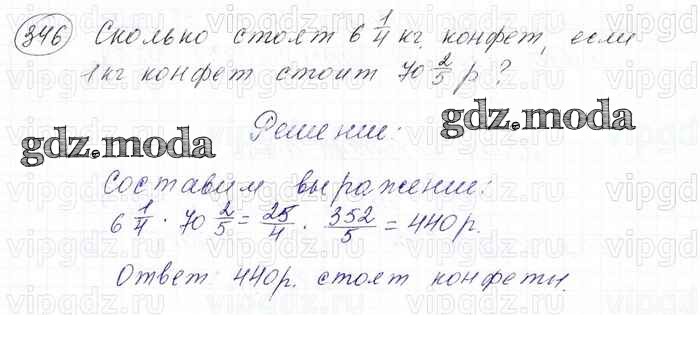 346 Сколько стоят 6 1/4 кг. конфет, если
1 кг конфет стоит 70 2/5 р?
Решение:
gdz.moda
gdz.moda
Составим выражение:
6 1/4 · 70 2/5 = 25/4 · 352/5 = 440 р.
Ответ 440 р. стоят конфеты.
vipgdz.ru